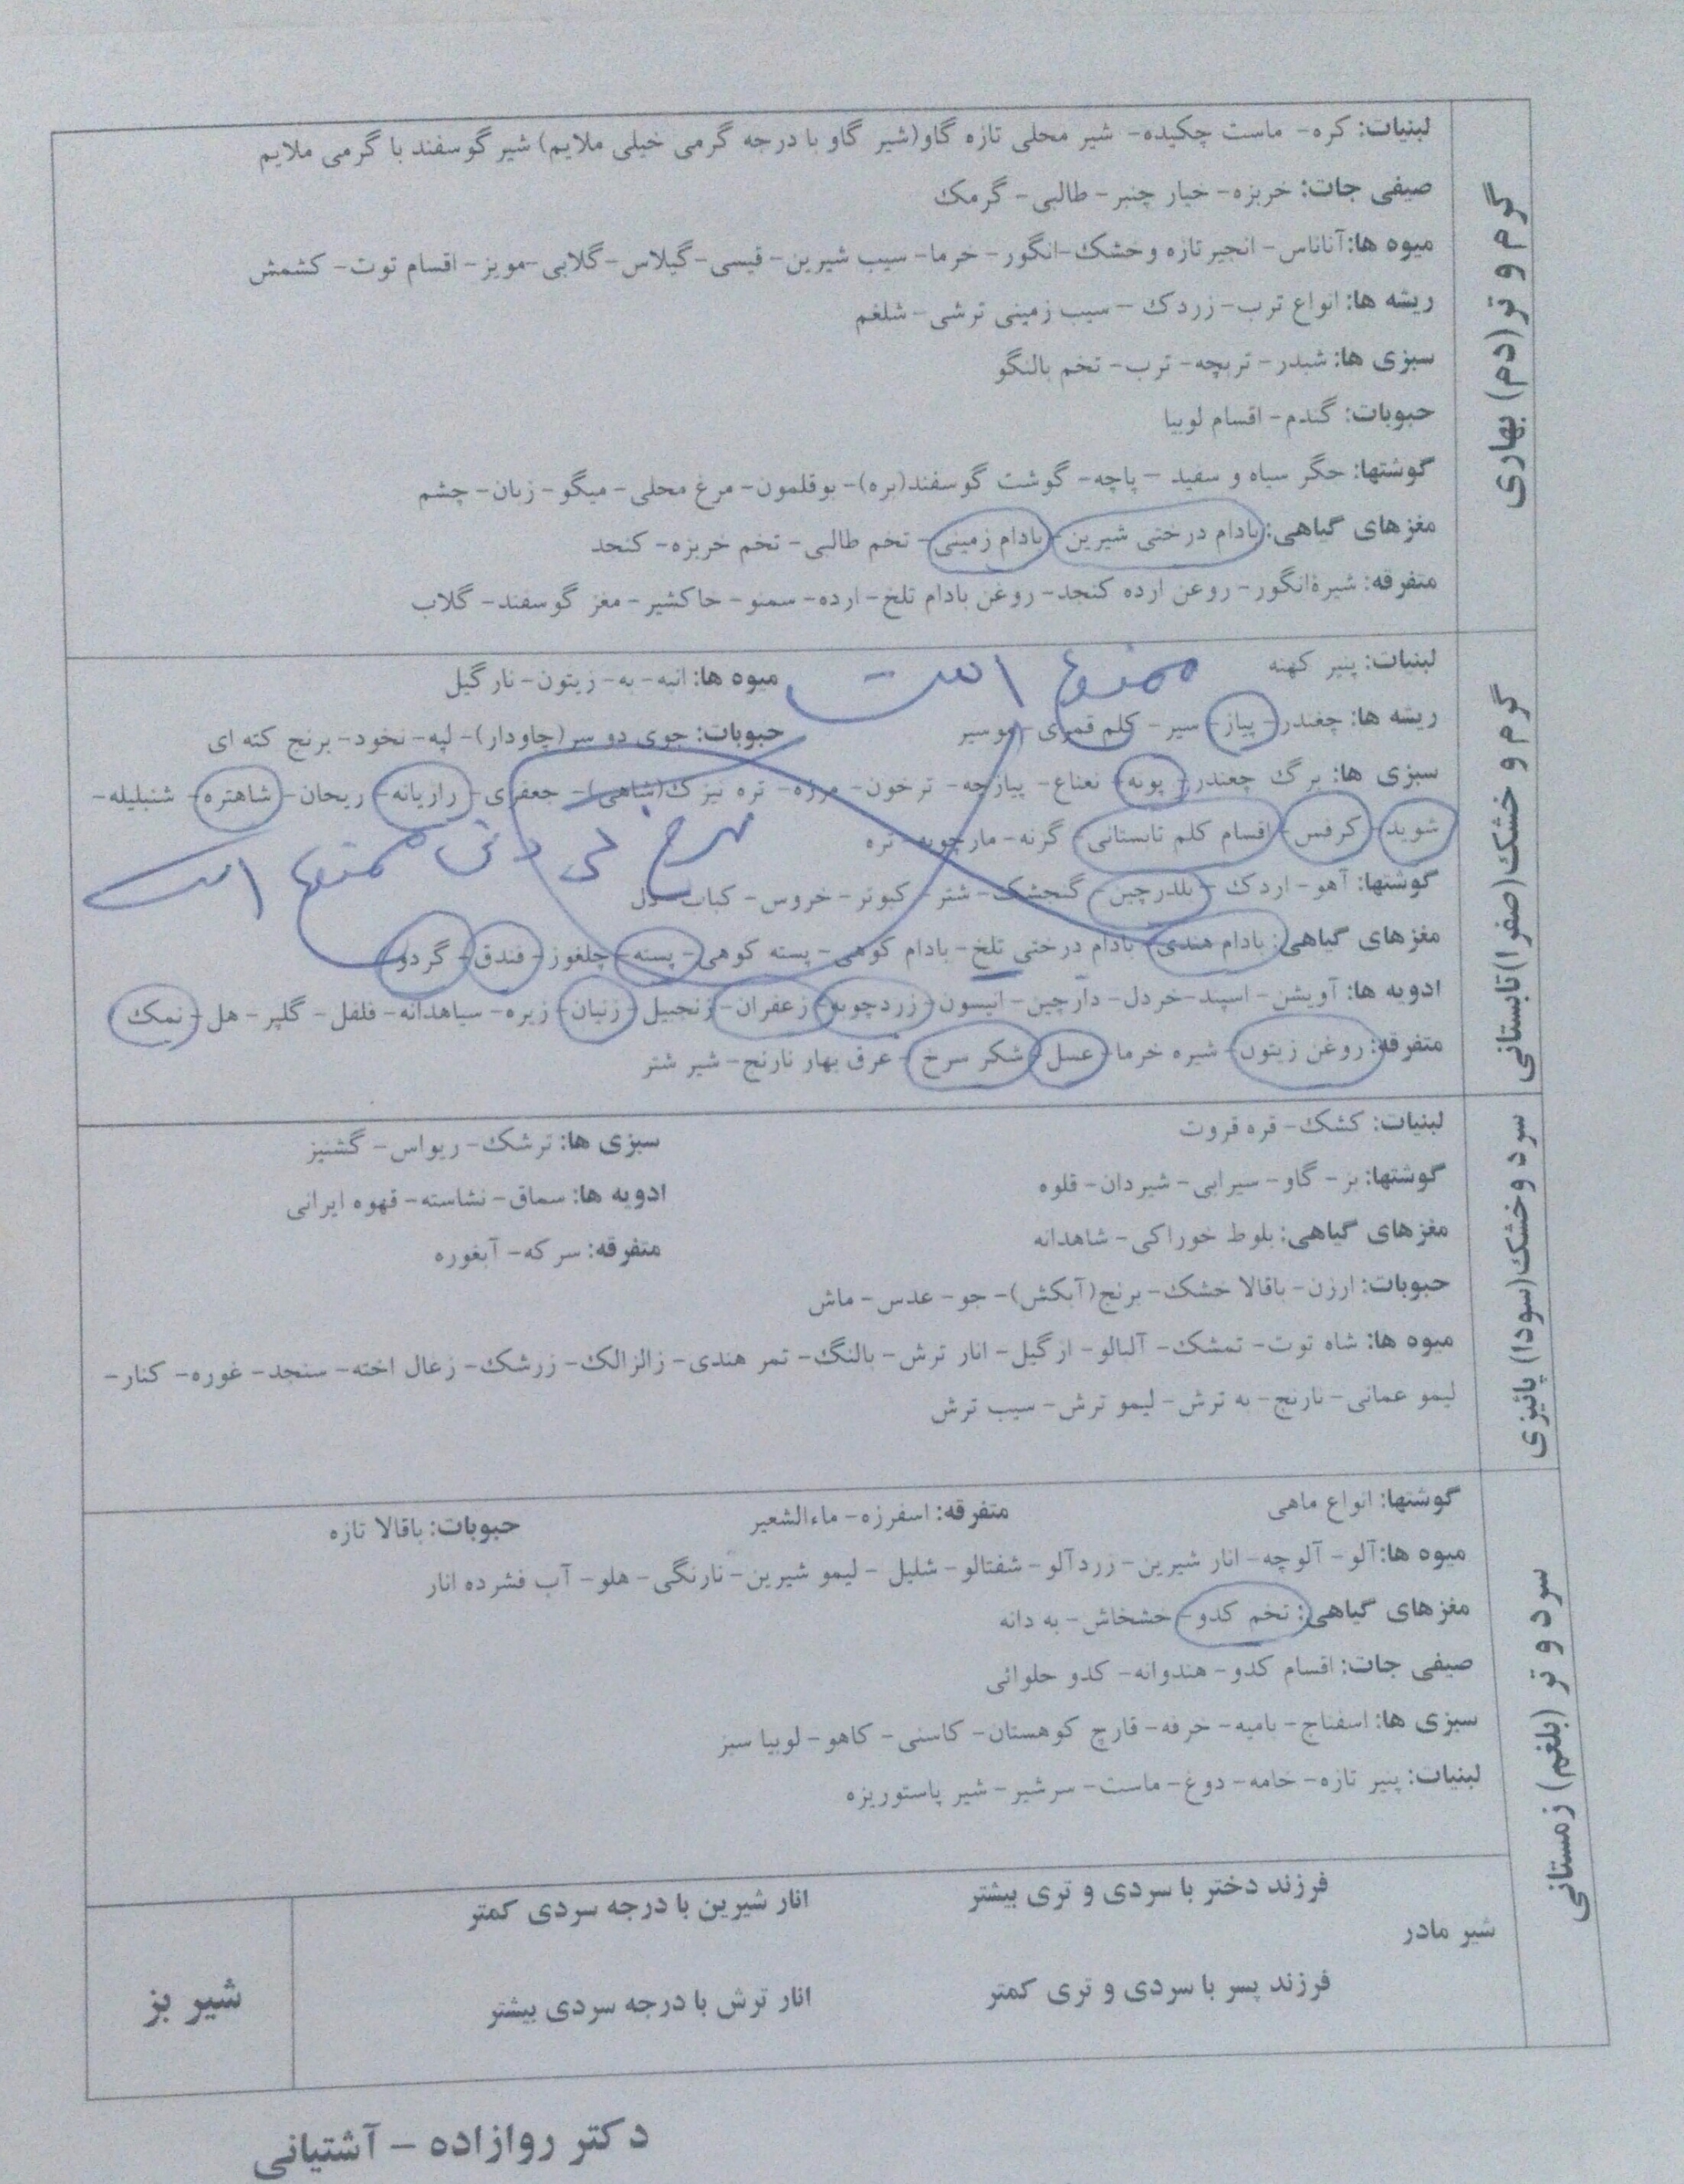 گرم و تر (دم) بهاری
لبنیات: کره- ماست چکیده- شیر محلی تازه گاو(شیر گاو با درجه گرمی خیلی ملایم) شیر گوسفند با گرمی ملایم
صیفی جات: خربزه- خیار چنبر- طالبی- گرمک
میوه ها:آناناس- انجیر تازه و خشک-انگور- خرما- سیب شیرین- قیسی-گیلاس-گلابی-مویز- اقسام توت- کشمش
ریشه ها: انواع ترب- زردک – سیب زمینی ترشی- شلغم
سبزی ها: شبدر- تربچه- ترب- تخم بالنگو
حبوبات: گندم- اقسام لوبیا
گوشتها: جگر سیاه و سفید – پاچه- گوشت گوسفند(بره)- بوقلمون- مرغ محلی- میگو- زبان- چشم
مغزهای گیاهی: بادام درختی شیرین- بادام زمینی- تخم طالبی- تخم خربزه- کنجد
متفرقه: شیرۀانگور- روغن ارده کنجد- روغن بادام تلخ- ارده- سمنو- خاکشیر- مغز گوسفند- گلاب
گرم و خشک(صفرا)تابستانی
لبنیات: پنیر کهنه
ممنوع است
میوه ها: انبه- به- زیتون- نارگیل
ریشه ها: چغندر- پیاز- سیر- کلم قمری- موسیر
حبوبات: جوی دو سر(چاودار)- لپه- نخود- برنج کته ای
سبزی ها: برگ چغندر- پونه- نعناع- پیازچه- ترخون- مرزه- تره تیزک(شاهی)- جعفری- رازیانه- ریحان- شاهتره- شنبلیله-
شوید- کرفس- اقسام کلم تابستانی- گزنه- مارچوبه- تره
ممنوع است
گوشتها: آهو- اردک – بلدرچین- گنجشک- شتر- کبوتر- خروس- کباب- دل
مغزهای گیاهی: بادام هندی- بادام درختی تلخ- بادام کوهی- پسته کوهی- پسته- چلغوز- فندق- گردو
ادویه ها: آویشن- اسپند-خردل- دارچین- انیسون- زردچوبه- زعفران- زنجبیل- زنیان- زیره- سیاهدانه- فلفل- گلپر- هل- نمک
متفرقه: روغن زیتون- شیره خرما- عسل- شکر سرخ- عرق بهار نارنج- شیر شتر
سرد وخشک(سودا) پائیزی
لبنیات: کشک- قره قروت
سبزی ها: ترشک- ریواس- گشنیز
گوشتها: بز- گاو- سیرابی- شیردان- قلوه
ادویه ها: سماق- نشاسته- قهوه ایرانی
مغزهای گیاهی: بلوط خوراکی- شاهدانه
متفرقه: سرکه- آبغوره
حبوبات: ارزن- باقالا خشک- برنج(آبکش)- جو- عدس- ماش
میوه ها: شاه توت- تمشک- آلبالو- ازگیل- انار ترش- بالنگ- تمر هندی- زالزالک- زرشک- زغال اخته- سنجد- غوره- کنار-
لیمو عمانی- نارنج- به ترش- لیمو ترش- سیب ترش
سرد و تر (بلغم) زمستانی
گوشتها: انواع ماهی
متفرقه: اسفرزه- ماءالشعیر
حبوبات: باقالا تازه
میوه ها:آلو- آلوچه- انار شیرین- زردآلو- شفتالو- شلیل- لیمو شیرین- نارنگی- هلو- آب فشرده انار
مغزهای گیاهی: تخم کدو- خشخاش- به دانه
صیفی جات: اقسام کدو- هندوانه- کدو حلوائی
سبزی ها: اسفناج- بامیه- خرفه- قارچ کوهستان- کاسنی- کاهو- لوبیا سبز
لبنیات: پنیر تازه- خامه- دوغ- ماست- سرشیر- شیر پاستوریزه
شیر مادر
فرزند دختر با سردی و تری بیشتر
انار شیرین با درجه سردی کمتر
فرزند پسر با سردی و تری کمتر
انار ترش با درجه سردی بیشتر
شیر بز
دکتر روازاده - آشتیانی